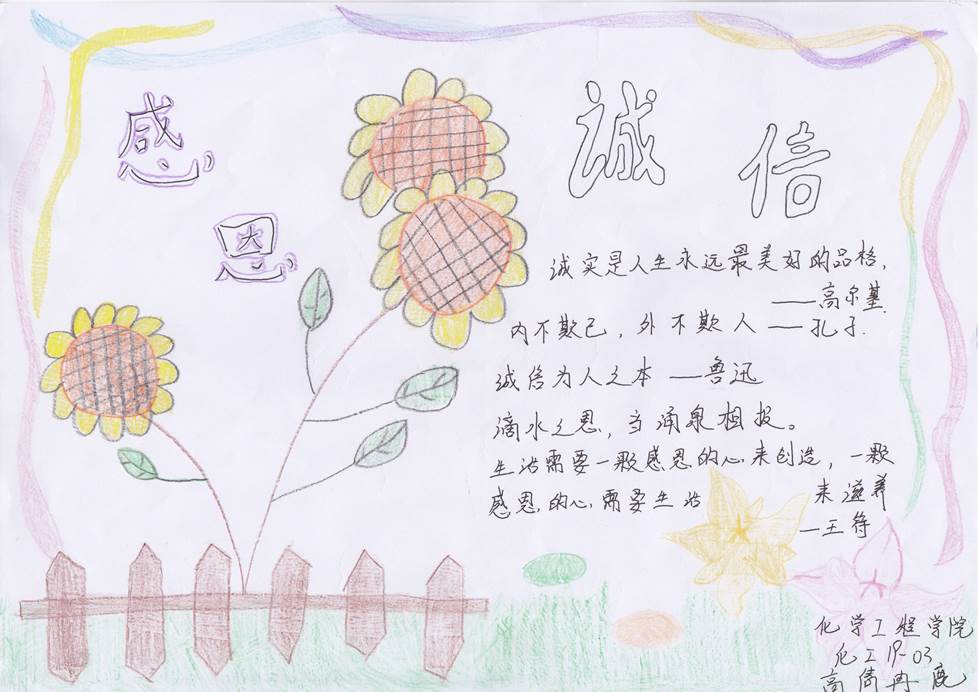 感
恩
诚
信
诚实是人生永远最美好的品格,
——高尔基
内不欺己,外不欺人——孔子.
诚信为人之本——鲁迅
滴水之恩,当涌泉相报。
生活需要一颗感恩的心来创造,一颗
感恩的心需要生活 来滋养
—王符
化学工程学院
化工19-03
高倩